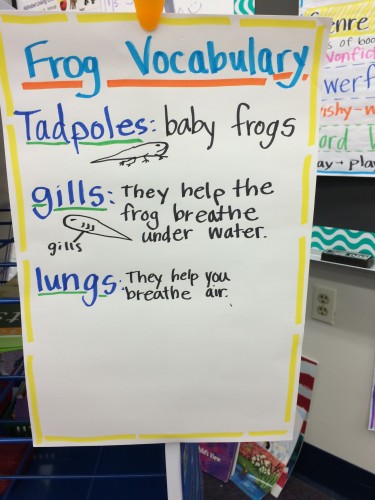 Frog Vocabulary
Tadpoles: baby frogs
gills: They help the
frog breathe
under water.
gills
lungs: They help you
breathe air.
enre
s of boo